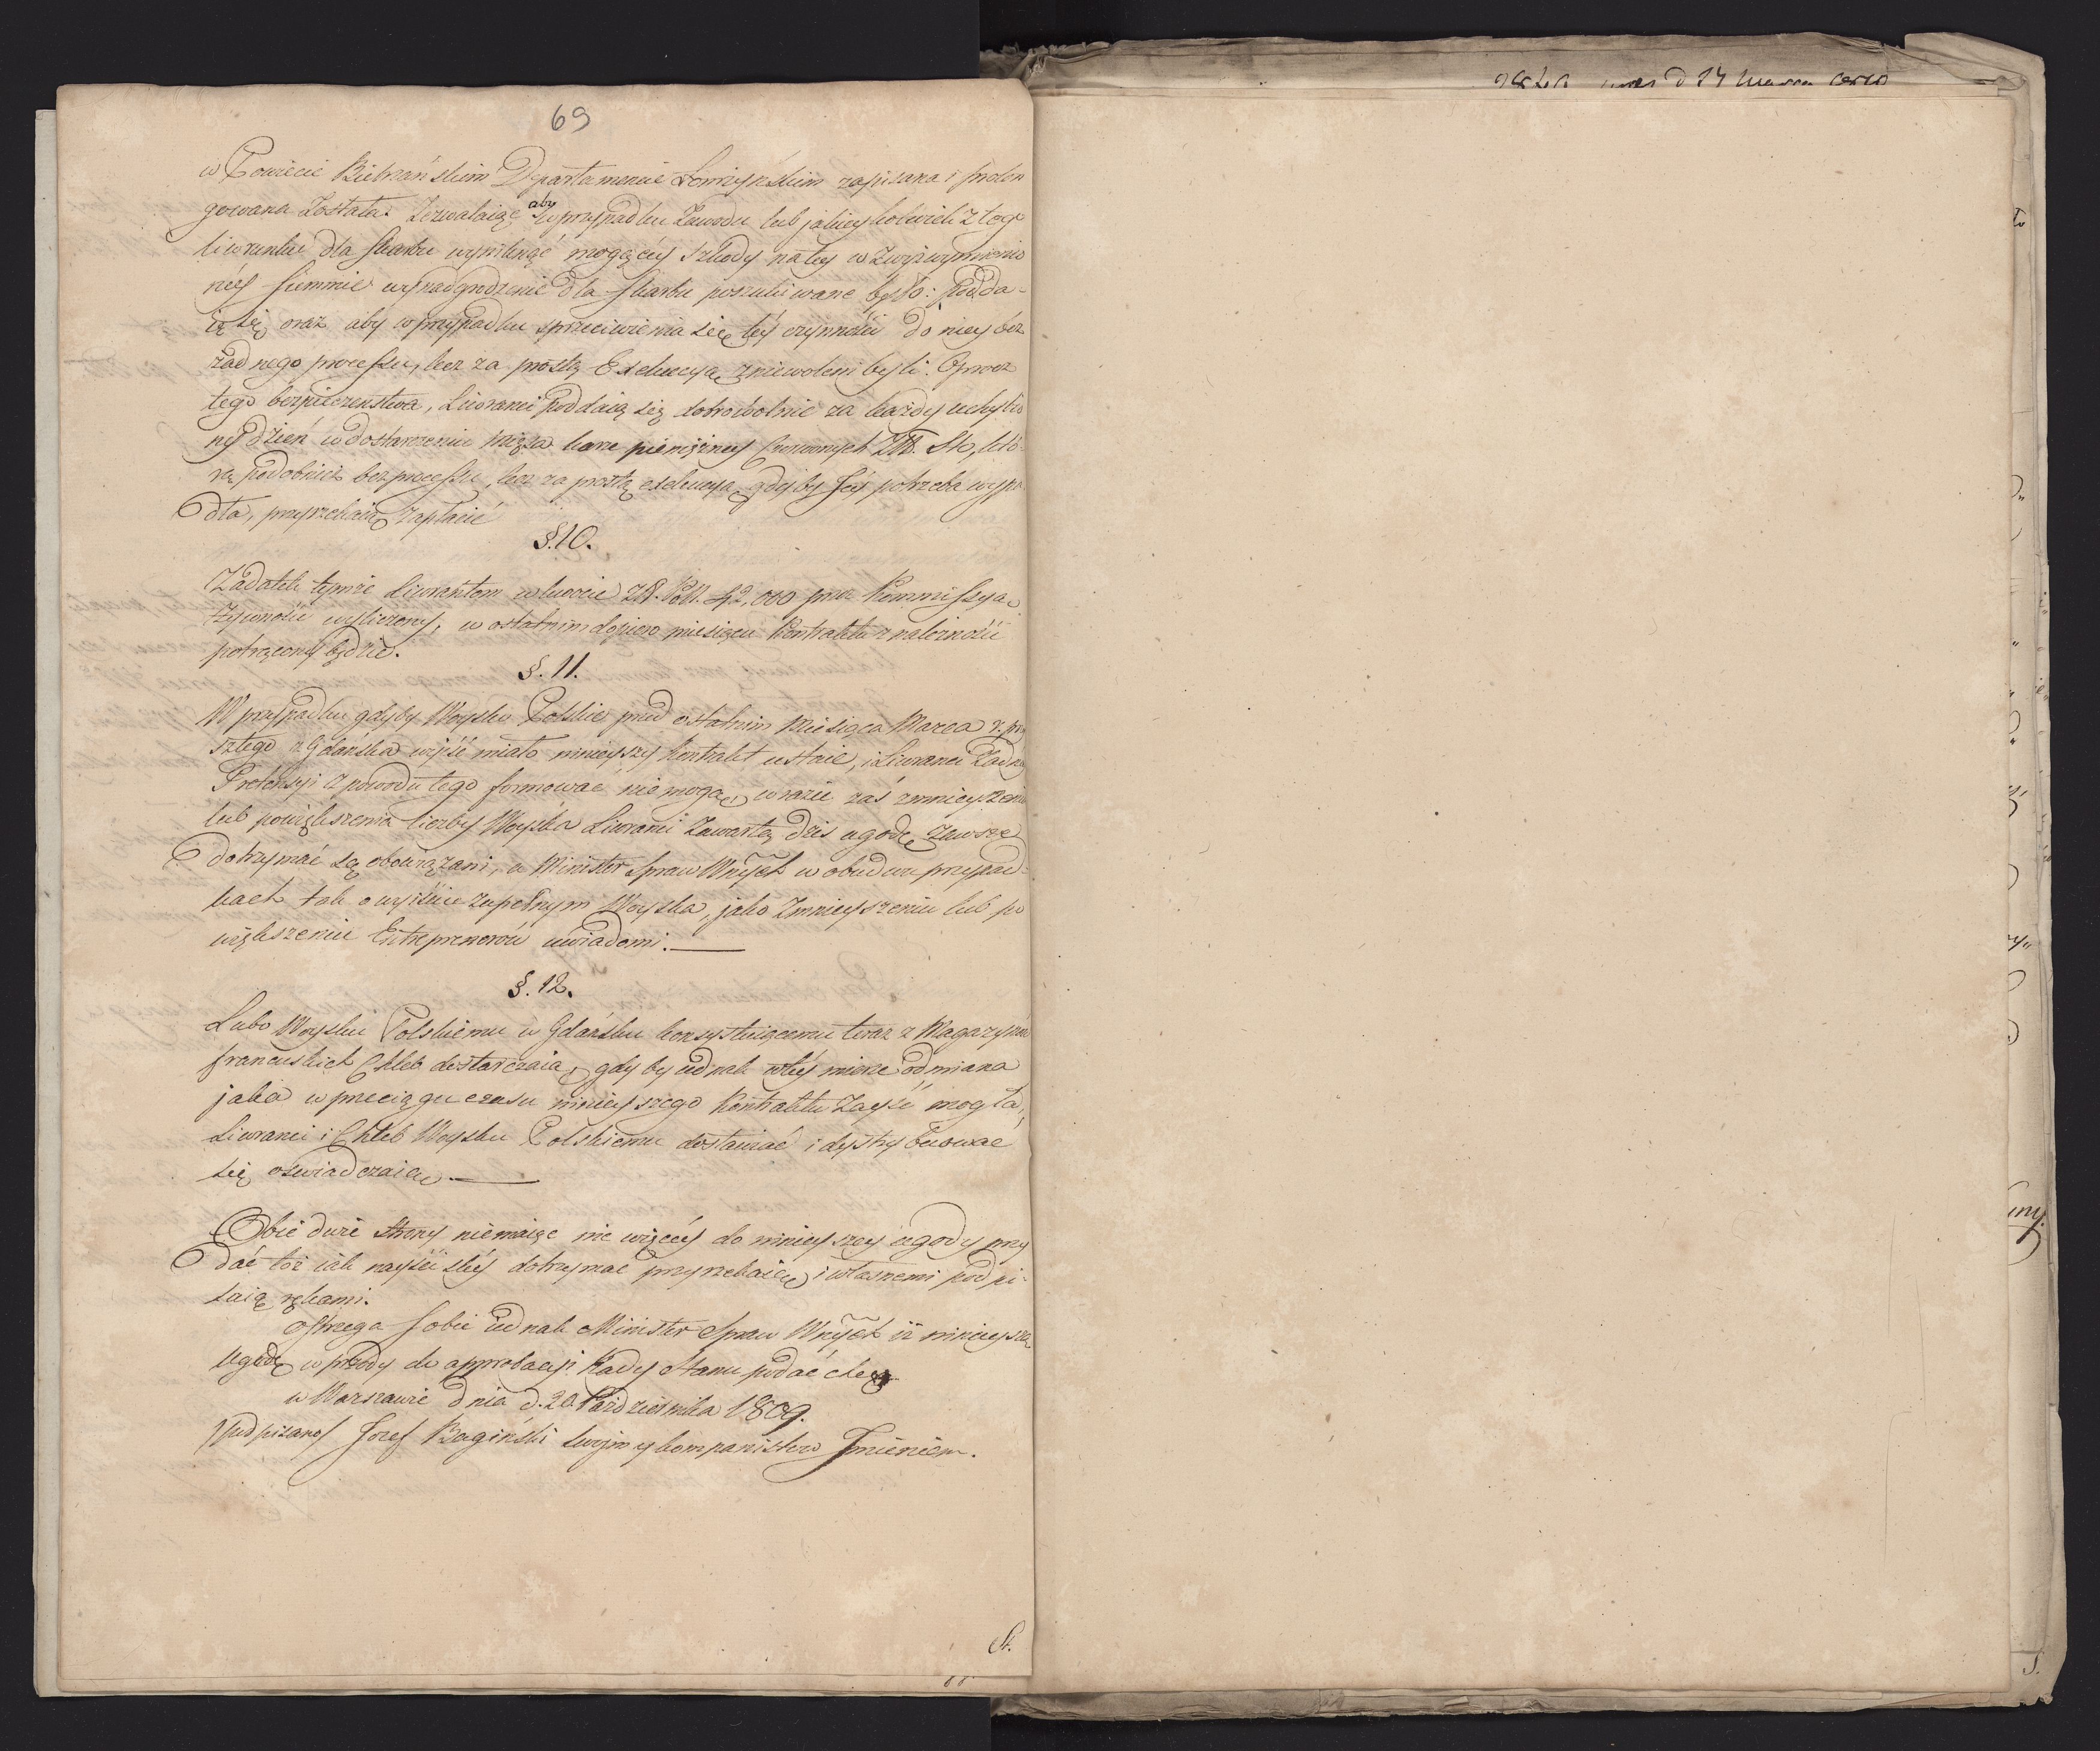 69
w Powiecie Biebrzańskim Departamencie Łomżyńskim zapisana i
gowana została. Zezwalaiąc aby w przypadku zawodu lub jakieykolwiek z tego
liwerunku dla Skarbu wyniknąć mogącéy szkody na tey w zwyż wymienio
néy summie wynadgrodzenie dla Skarbu poszukiwane było: podda-
ią się oraz aby w przypadku sprzeciwienia się téy czynności do niey bez
żadnego processu, lecz za prostą Exekucyą zniewoleni byli. Oprocz
tego bezpieczenstwa, Liweranci poddaią się dobrowolnie za każdy uchybio
ny dzień w dostarczeniu mięsa karze pieniężney Czerwonych Złł. Sto, któ-
rą podobnież bez processu, lecz za prostą exekucyą gdyby Jéy potrzeba wypa
dła, przyrzekaią zapłacić
§.10.
Zadatek tymże Liwerantom w kwocie Zł. Poll. 42,000 przez Kommissyą
Żywności wyliczony, w ostatnim dopiero miesiącu Kontraktu z należności
potrącony będzie.
§. 11.
W przypadku gdyby Woysko Polskie przed ostatnim Miesiąca Marca r. przy
szłego z Gdańska wyiść miało ninieyszy Kontrakt ustaie, i Liweranci żadnéy
Pretensyi z powodu tego formować nie mogą, w razie zaś zmnieyszenia
lub powiększenia liczby Woyska Liweranci zawartą dziś ugodę zawsze
dotrzymać są obowiązani, a Minister Spraw Wnych w obudwu przypad-
kach tak o wyiściu zupełnym Woyska, jako zmnieyszeniu lub po
większeniu Entreprenerów uwiadomi.
§. 12.
Lubo Woysku Polskiemu w Gdańsku konsystuiącemu teraz z Magazynów
francuskich Chleb dostarczaią, gdyby iednak w téy mierze odmiana
jaka w przeciągu czasu ninieyszego Kontraktu zayść mogła,
Liweranci i Chleb Woysku Polskiemu dostawiać i dystrybuować
się oświadczaią.
Obie dwie strony niemaiąc nic więcéy do ninieyszey ugody przy
dać też iak nayściśléy dotrzymać przyrzekaią i własnemi podpi-
suią rękami.
Ostrzega sobie iednak Minister Spraw Wnych iż ninieyszą
Ugodę wprzody do approbacyi Rady Stanu podać chce
w Warszawie dnia d. 20 Październka 1809.
Podpisano/ Jozef Bagiński swojm y kompanistow Jmieniem.
St.